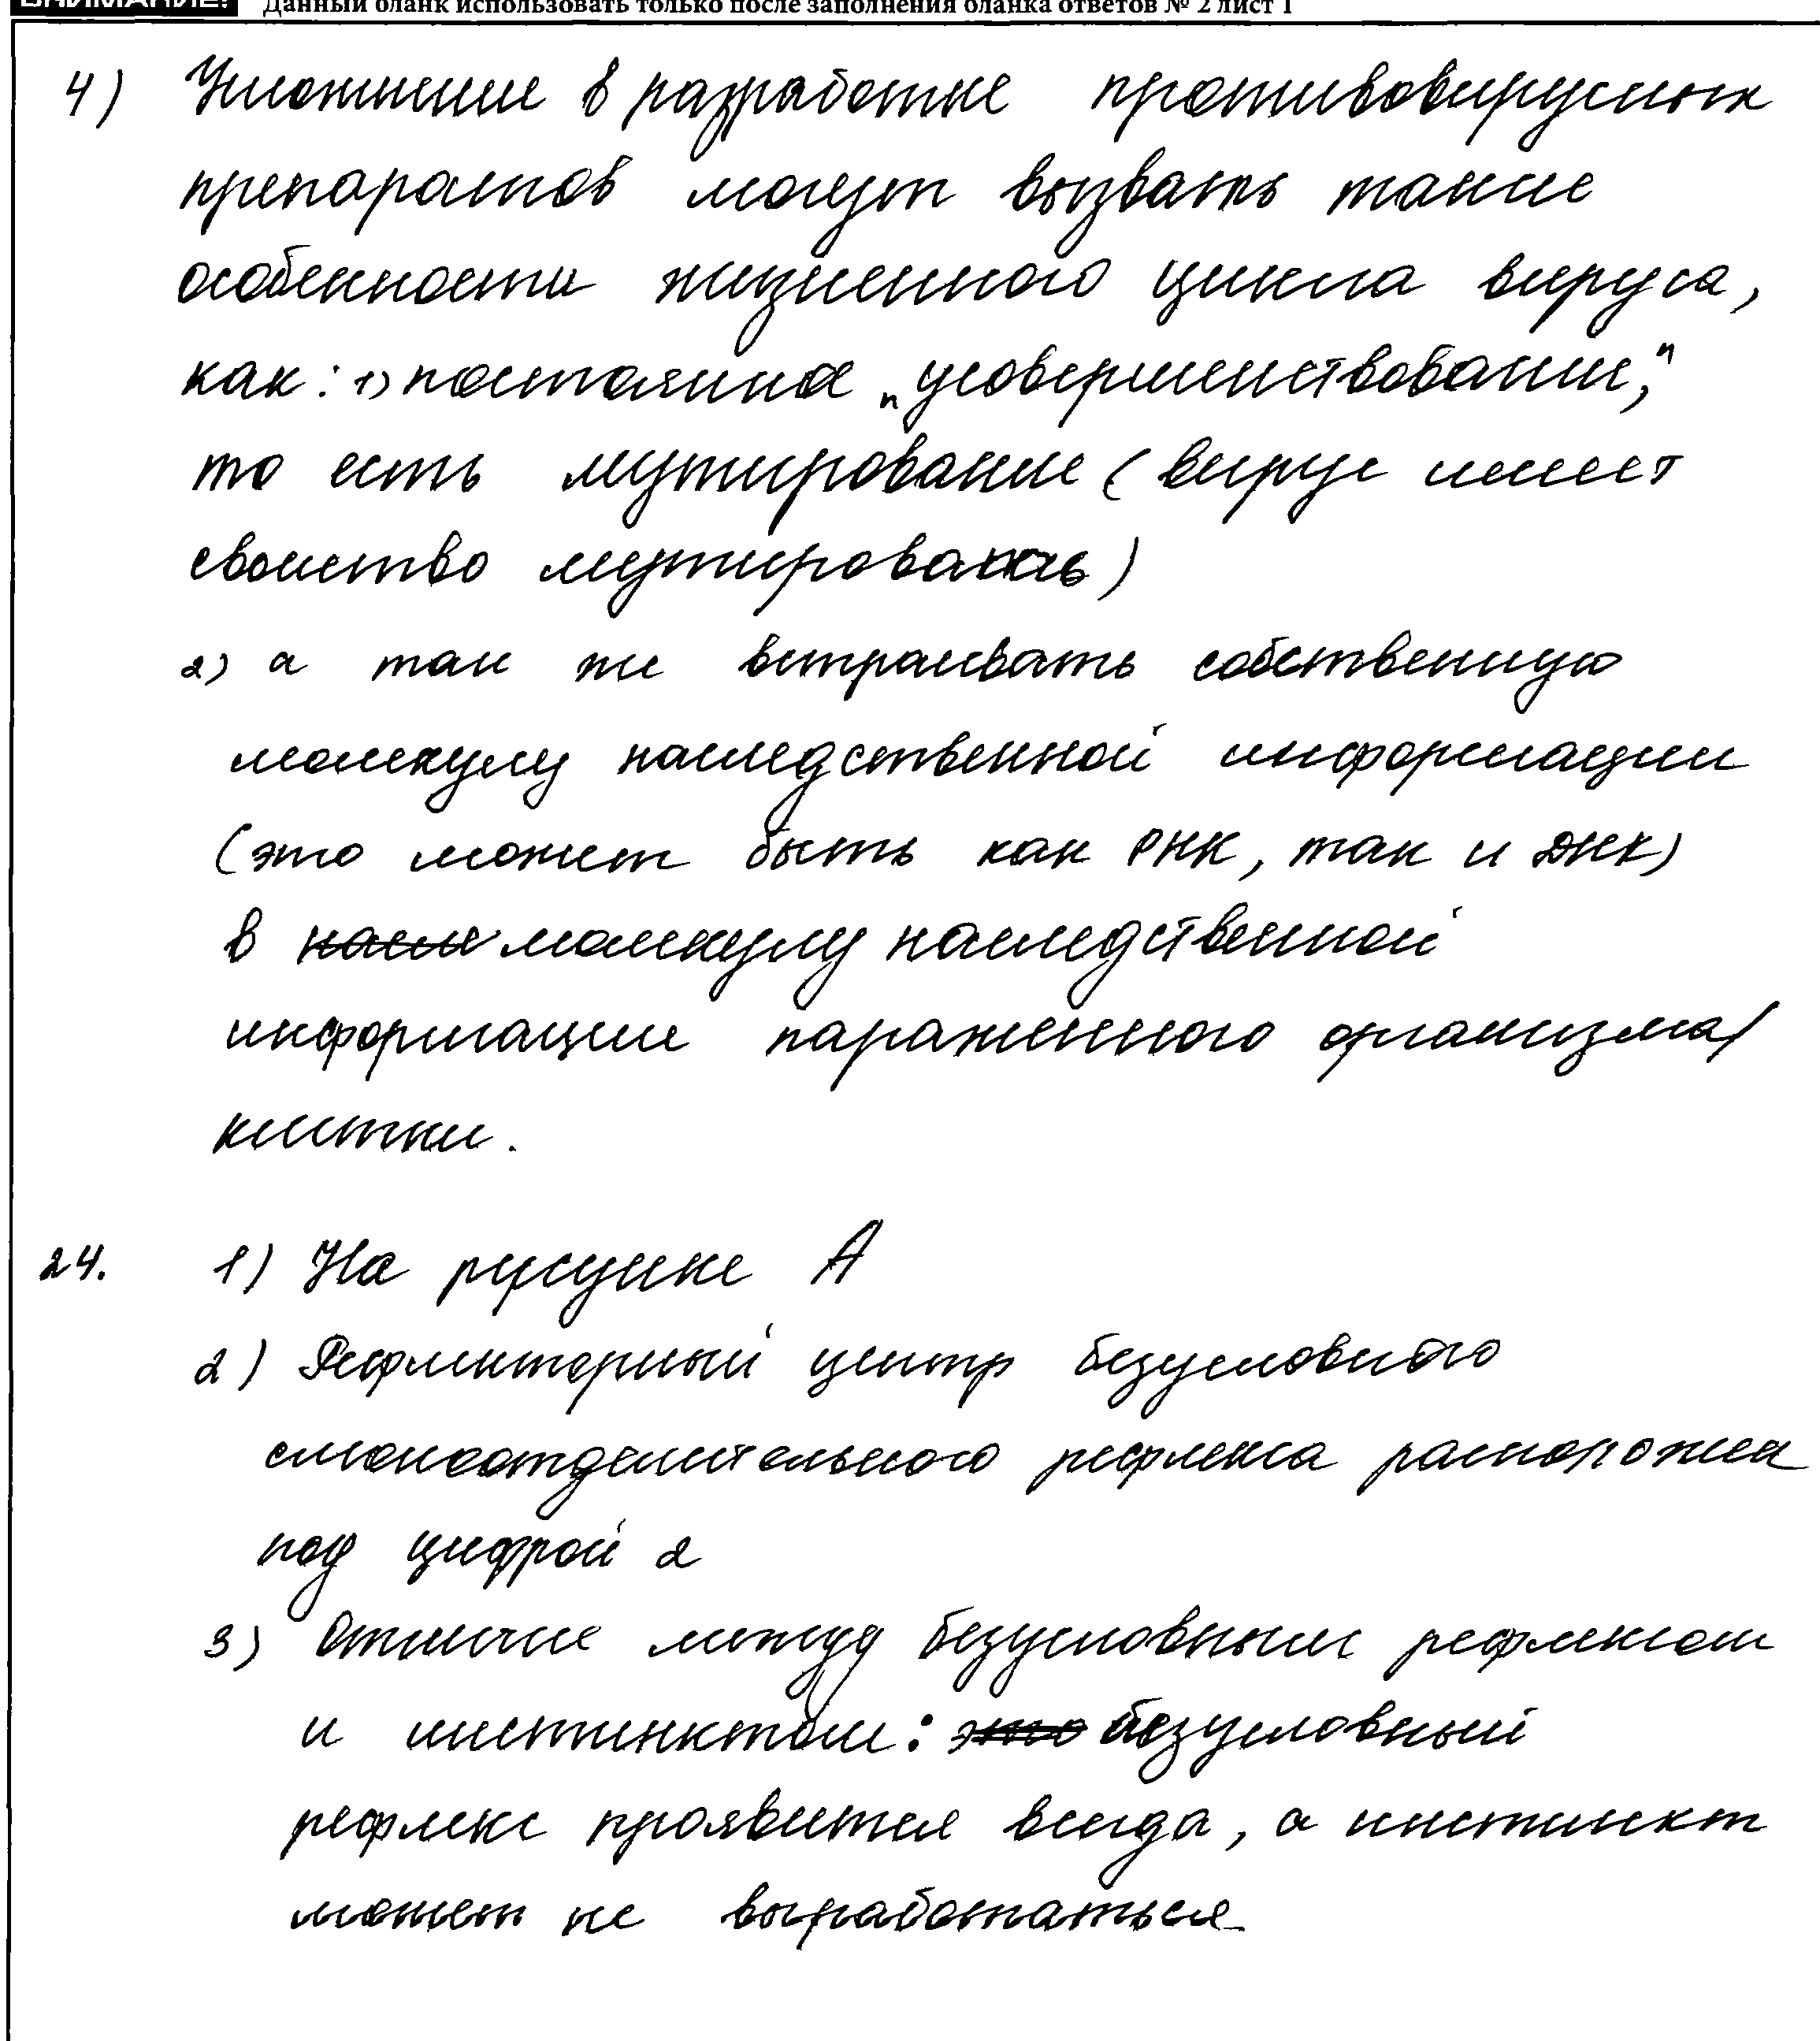 ВНИМАНИЕ! Данный бланк использовать только после заполнения бланка ответов № 2 лист 1
4) Усложнение в разработке противовирусных
препаратов могут вызвать такие
особенности жизненного цикла вируса,
как: 1) постоянное „усовершенствование",
то есть мутирование (вирус имеет
свойство мутировать)
2) а так же встраивать собственную
молекулу наследственной информации
(это может быть как РНК, так и ДНК)
в молекулу наследственной
информации параженного организма/
клетки.
24. 1) На рисунке А
2) Рефлекторный центр безусловного
слюноотделительного рефлекса расположен
под цифрой 2
3) Отличие между безусловным рефлексом
и инстинктом: это безусловный
рефлекс проявится всегда, а инстинкт
может не выработаться